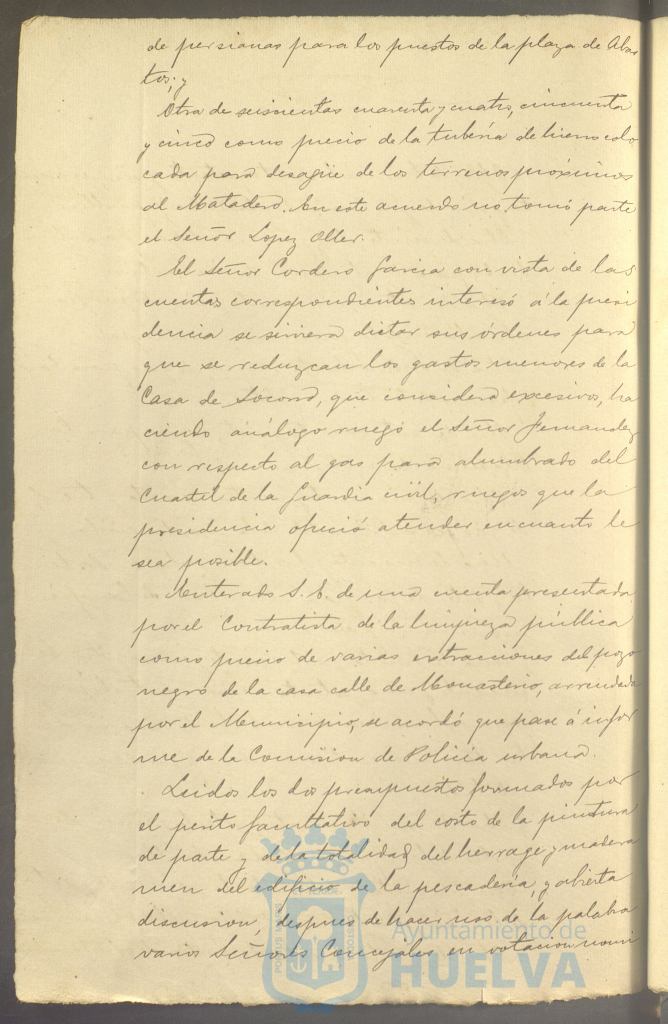 de persianas para los puestos de la plaza de Abas
tos; y
Otra de seiscientas cuarenta y cuatro, cincuenta
y cinco como precio de la tubería de hierro colo
cada para desagüe de los terrenos próximos
al Matadero. En este acuerdo no tomó parte
el Señor Lopez Oller.
El Señor Cordero Garcia con vista de las
cuentas correspondientes interesó á la presi
dencia se sirviera dictar sus órdenes para
que se reduzcan los gastos menores de la
Casa de Socorro, que considera excesivos, ha
ciendo análogo ruego el Señor Fernandez
con respecto al gas para alumbrado del
Cuartel de la Guardia civil, ruegos que la
presidencia ofreció atender en cuanto le
sea posible.
Enterado S. E. de una cuenta presentada
por el Contratista de la limpieza pública
como precio de varias extracciones del pozo
negro de la casa calle de Monasterio, arrendada
por el Municipio, se acordó que pase á infor
me de la Comision de Policia urbana.
Leidos los dos presupuestos formados por
el perito facultativo del costo de la pintura
de parte y de la totalidad del herrage y madera
men del edificio de la pescaderia, y abierta
discusion, despues de hacer uso de la palabra
varios Señores Concejales en votacion nomi
Ayuntamiento de
HUELVA